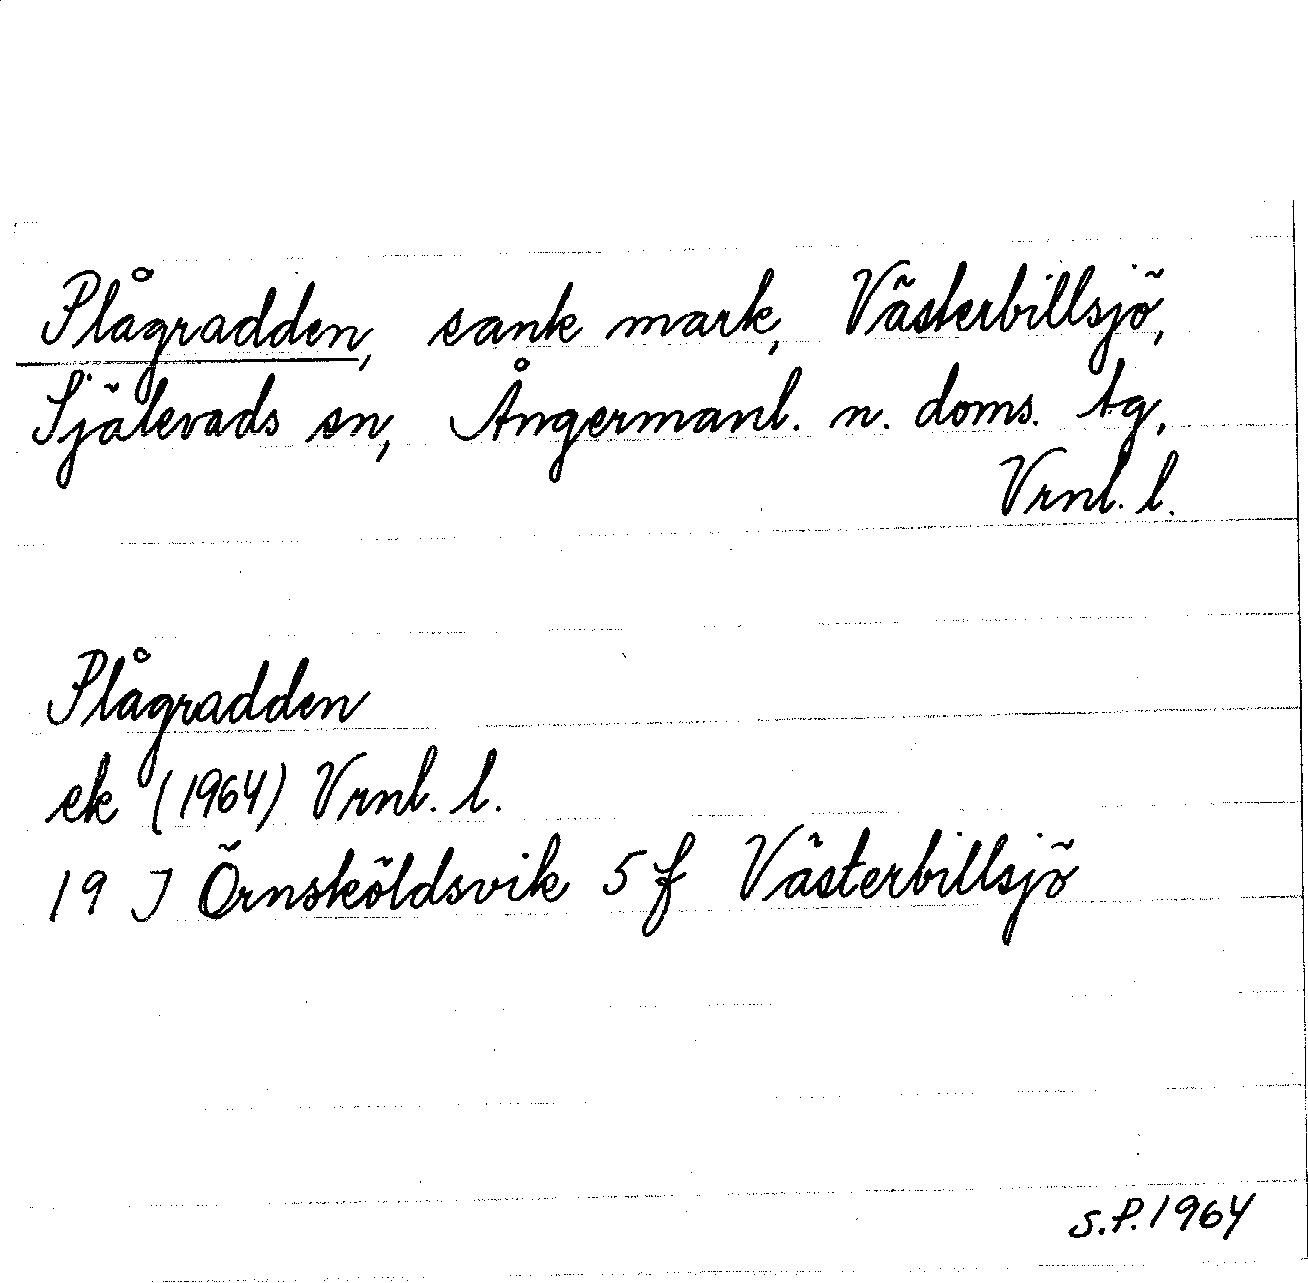 Plågradden, sank mark, Västerbillsjö,
Själevads sn, Ångermanl. n. doms. tg,
Vrnl. l.
Plågradden
ek (1964) Vrnl. l.
19 J Örnsköldsvik 5 f Västerbillsjö
S.P. 1964